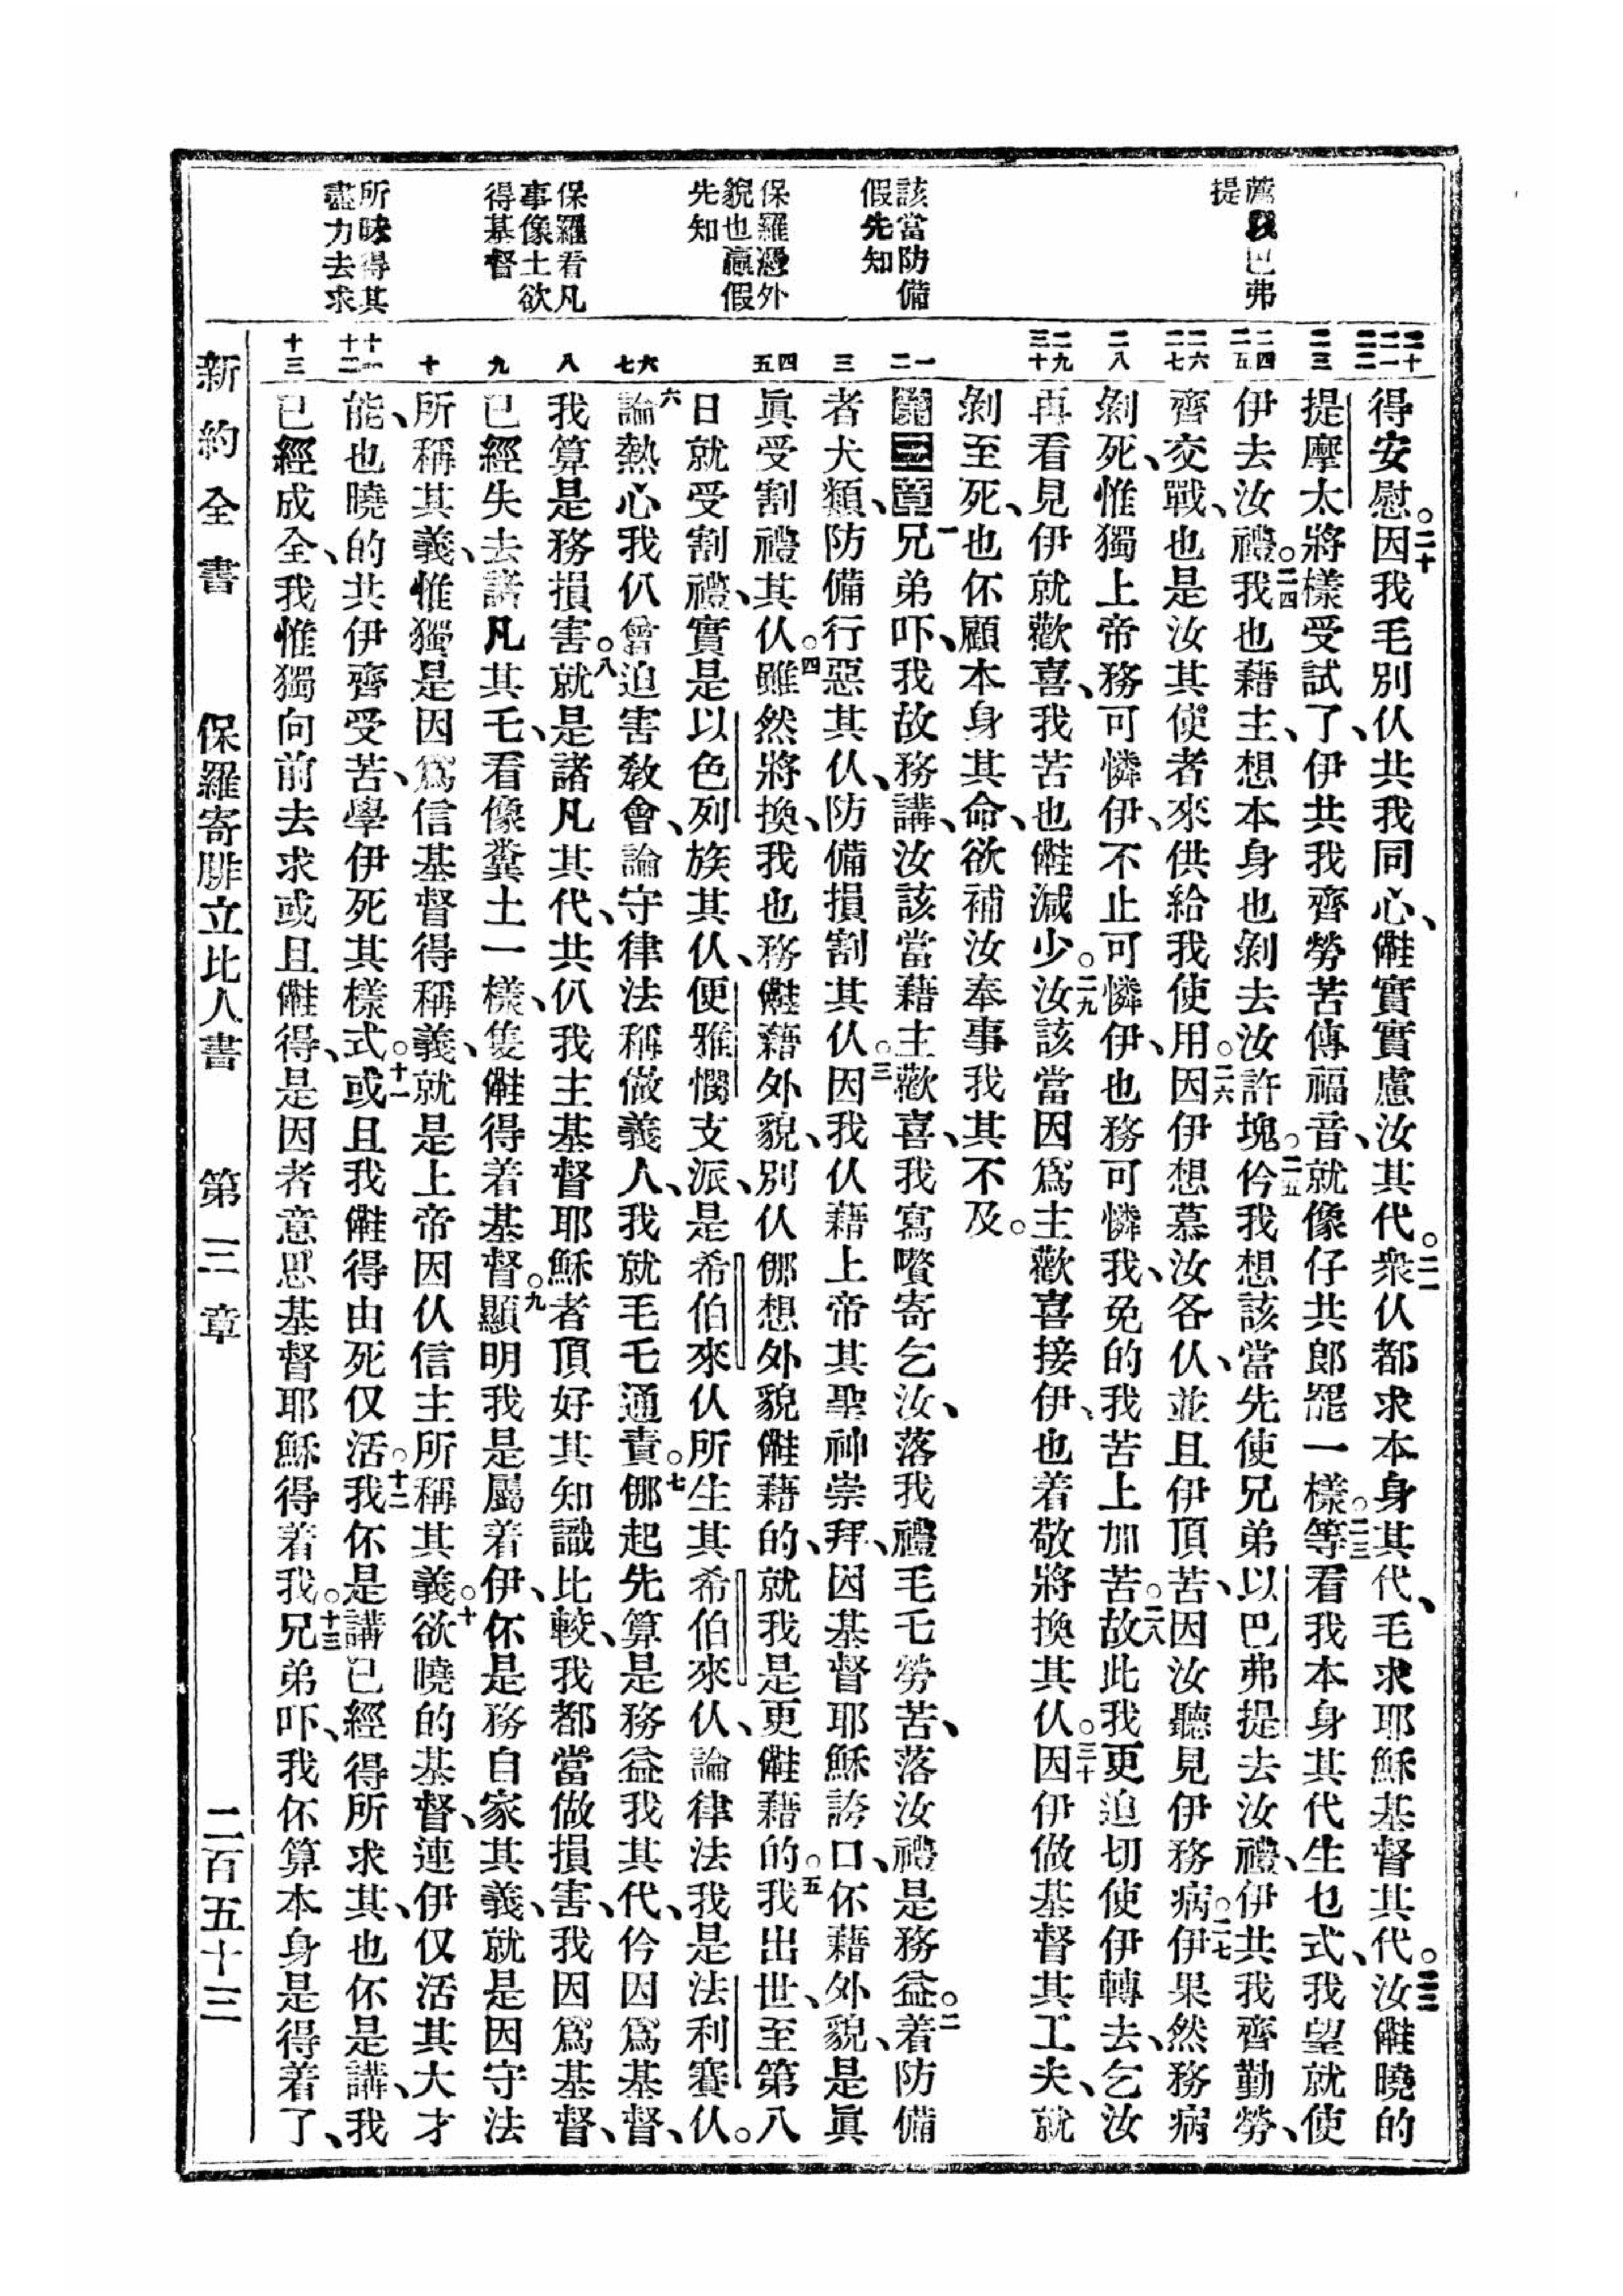 薦我以巴弗
提
該當防備
假先知
保羅憑外
貌也贏假
先知
保羅看凡
事像土欲
得基督
所昧得其
盡力去求
得安慰。二十因我毛別仈共我同心、㑚實實慮汝其代。二一衆仈都求本身其代、毛求耶穌基督其代。二二汝㑚曉的
提摩太將樣受試了、伊共我齊勞苦傳福音、就像仔共郎罷一樣。二三等看我本身其代生乜式、我望就使
伊去汝禮。二四我也藉主、想本身也剝去汝許塊。二五仱我想該當先使兄弟以巴弗提去汝禮、伊共我齊勤勞、
齊交戰、也是汝其使者來供給我使用。二六因伊想慕汝各仈、並且伊頂苦、因汝聽見伊務病。二七伊果然務病
剝死、惟獨上帝務可憐伊、不止可憐伊、也務可憐我、免的我苦上加苦。二八故此我更迫切使伊轉去、乞汝
再看見伊就歡喜、我苦也㑚減少。二九汝該當因爲主歡喜接伊、也着敬將換其仈。三十因伊做基督其工夫、就
剝至死、也伓顧本身其命、欲補汝奉事我其不及。
第三章一兄弟吓、我故務講、汝該當藉主歡喜、我寫嚽寄乞汝、落我禮毛乇勞苦、落汝禮是務益。二着防備
者犬類、防備行惡其仈、防備損割其仈。三因我仈藉上帝其聖神崇拜、因基督耶穌誇口、伓藉外貌、是眞
眞受割禮其仈。四雖然將換、我也務㑚藉外貌、別仈㑚想外貌㑚藉的、就我是更㑚藉的。五我出世、至第八
日就受割禮、實是以色列族其仈、便雅憫支派、是希伯來仈所生其希伯來仈、論律法我是法利賽仈。
六論熱心我仈曾迫害敎會、論守律法稱做義人、我就毛乇通責。七㑚起先算是務益我其代、仱因爲基督、
我算是務損害。八就是諸凡其代、共仈我主基督耶穌者頂好其知識比較、我都當做損害、我因爲基督、
已經失去諸凡其乇、看像糞土一樣、隻㑚得着基督。九顯明我是屬着伊、伓是務自家其義、就是因守法
所稱其義、惟獨是因爲信基督得稱義、就是上帝因仈信主所稱其義。十欲曉的基督、連伊仅活其大才
能、也曉的共伊齊受苦、學伊死其樣式。十一或且我㑚得由死仅活。十二我伓是講已經得所求其、也伓是講、我
已經成全、我惟獨向前去求或且㑚得、是因者意思基督耶穌得着我。十三我兄弟吓、我伓算本身是得着了、
新約全書　保羅寄腓立比人書　第三章　二百五十三